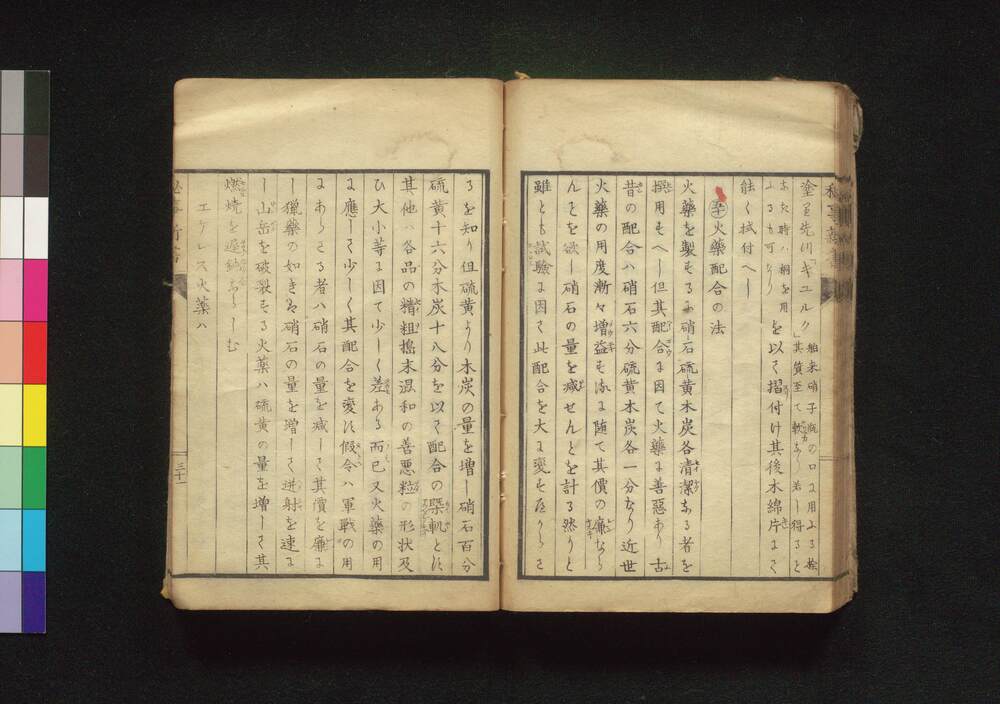 塗り先川「キユルク」舶来硝子瓶の口に用ふる栓其質至て軟なり若し得ること欠時ハ桐を用ふるも可なりを以て摺付け其後木綿片にて
能く拭付へし
火薬配合の法
火薬を製するに硝石硫黄木炭各清潔なる者を
撰用すへし但其配合に因て火薬に善惡あり古
昔の配合ハ硝石六分硫黄木炭各一分なり近世
火薬の用度漸々増益する随て其價の廉なら
んことを欲し硝石の量を减せんとを計る然りと
雖とも試驗に因て此配合を大に変すへからさ
るを知り但硫黄より木炭の量を増し硝石百分
硫黄十六分木炭十八分を以て配合の榘軌とす
其他ハ各品の精粗搗末混和の善悪粒の形状及
ひ大小等に因て少しく差ある而已又火薬の用
に應して少しく其配合を変す假令ハ軍戦の用
にあらさる者ハ硝石の量を减して其價を廉に
し獵藥の如きは硝石の量を増して迸射を速に
し山岳を破裂する火薬ハ硫黄の量を増して其
燃焼を遅鈍ならしむ
エケレス火薬ハ
三十一